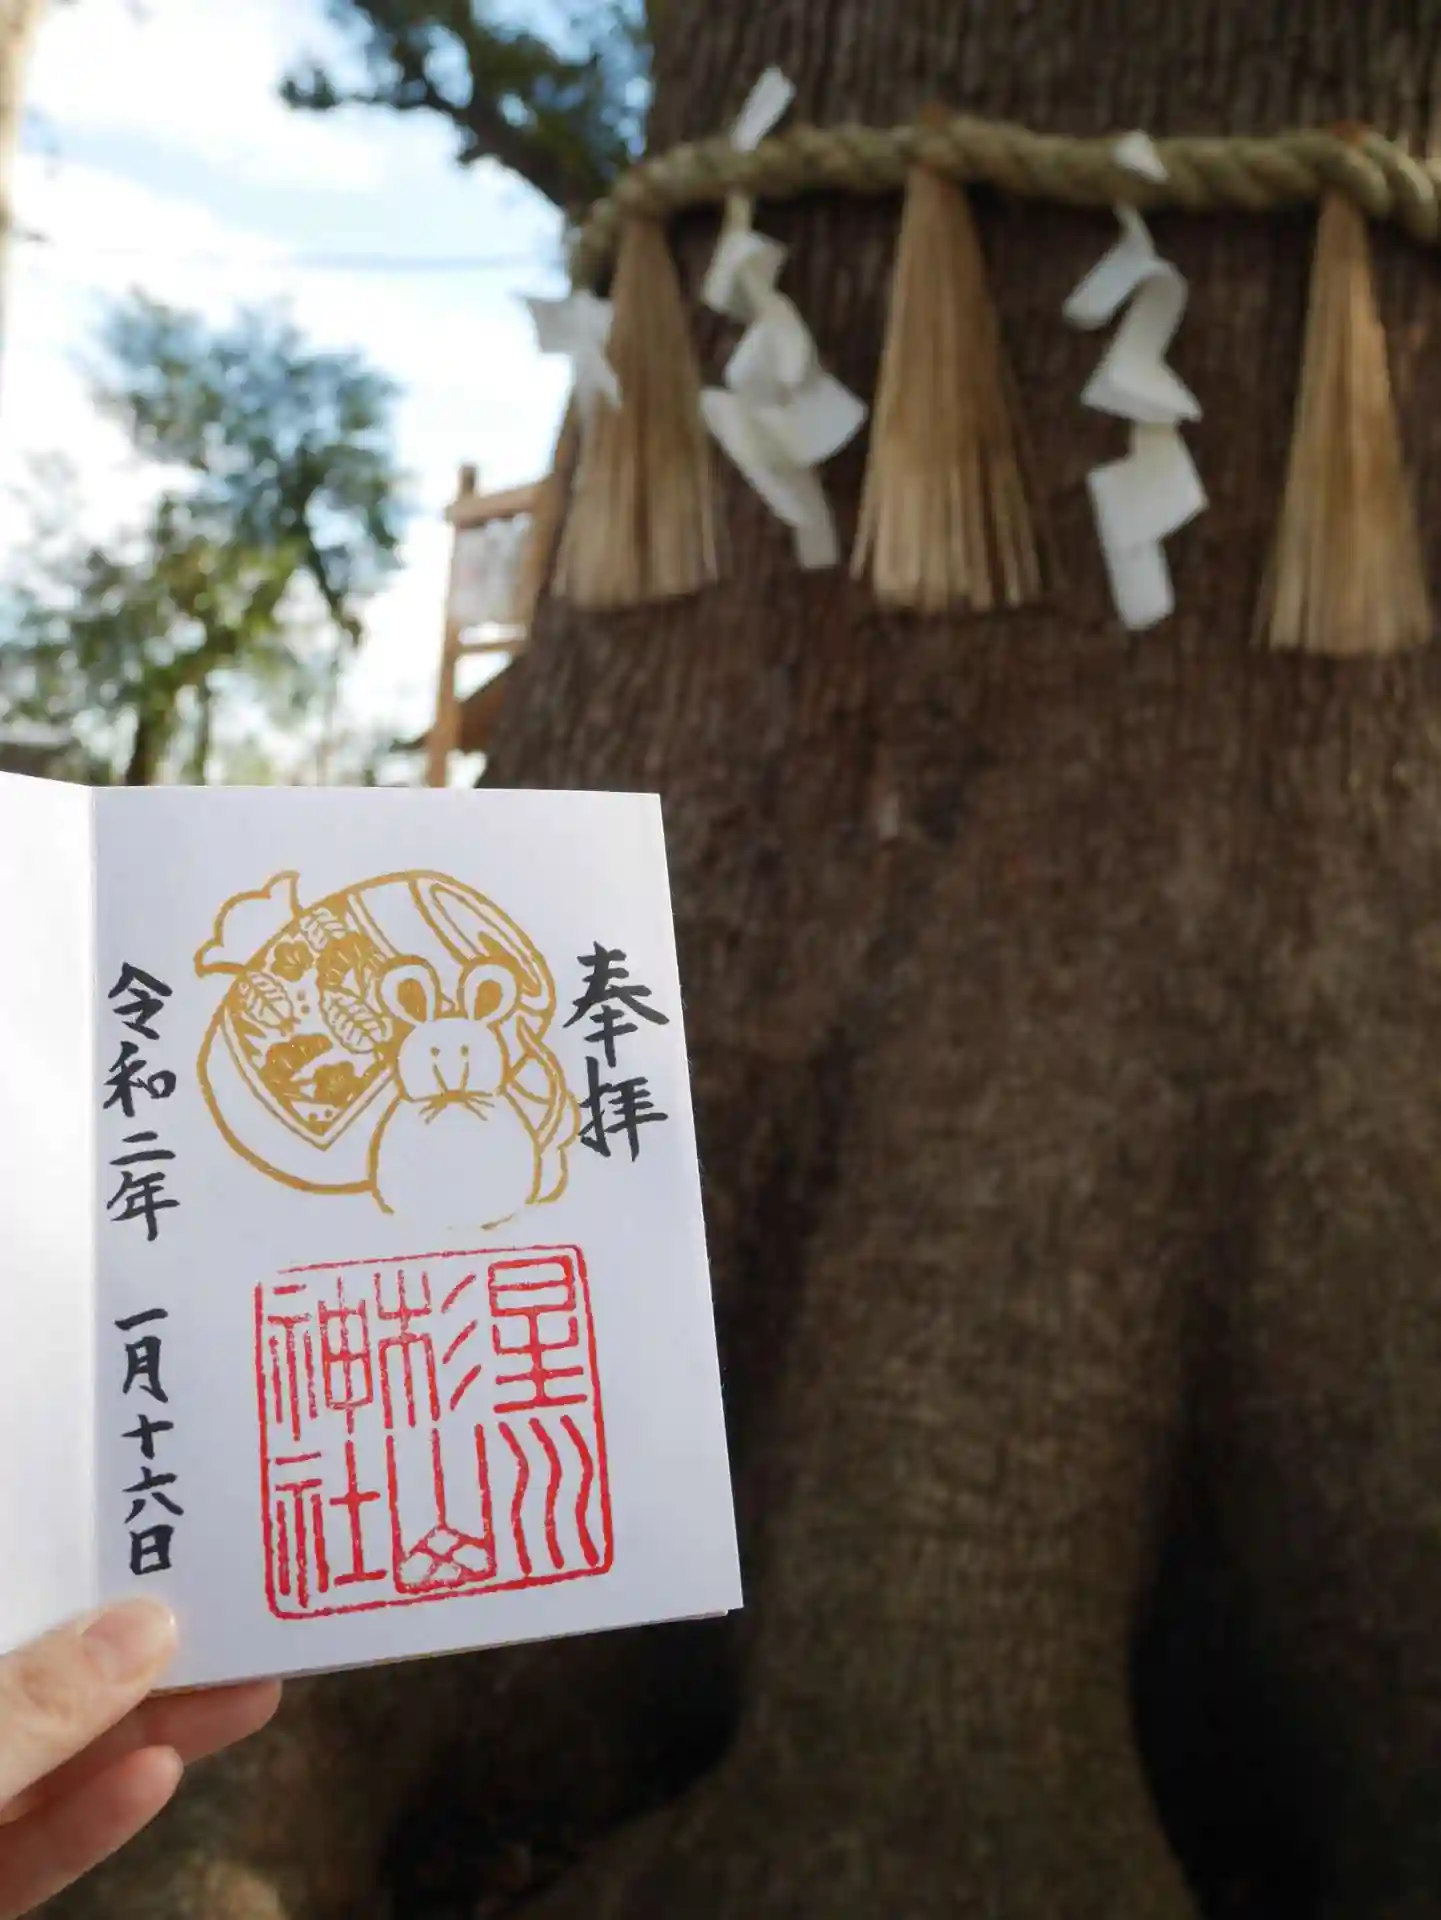 奉拝
星川
杉山
神社
令和二年 一月十六日